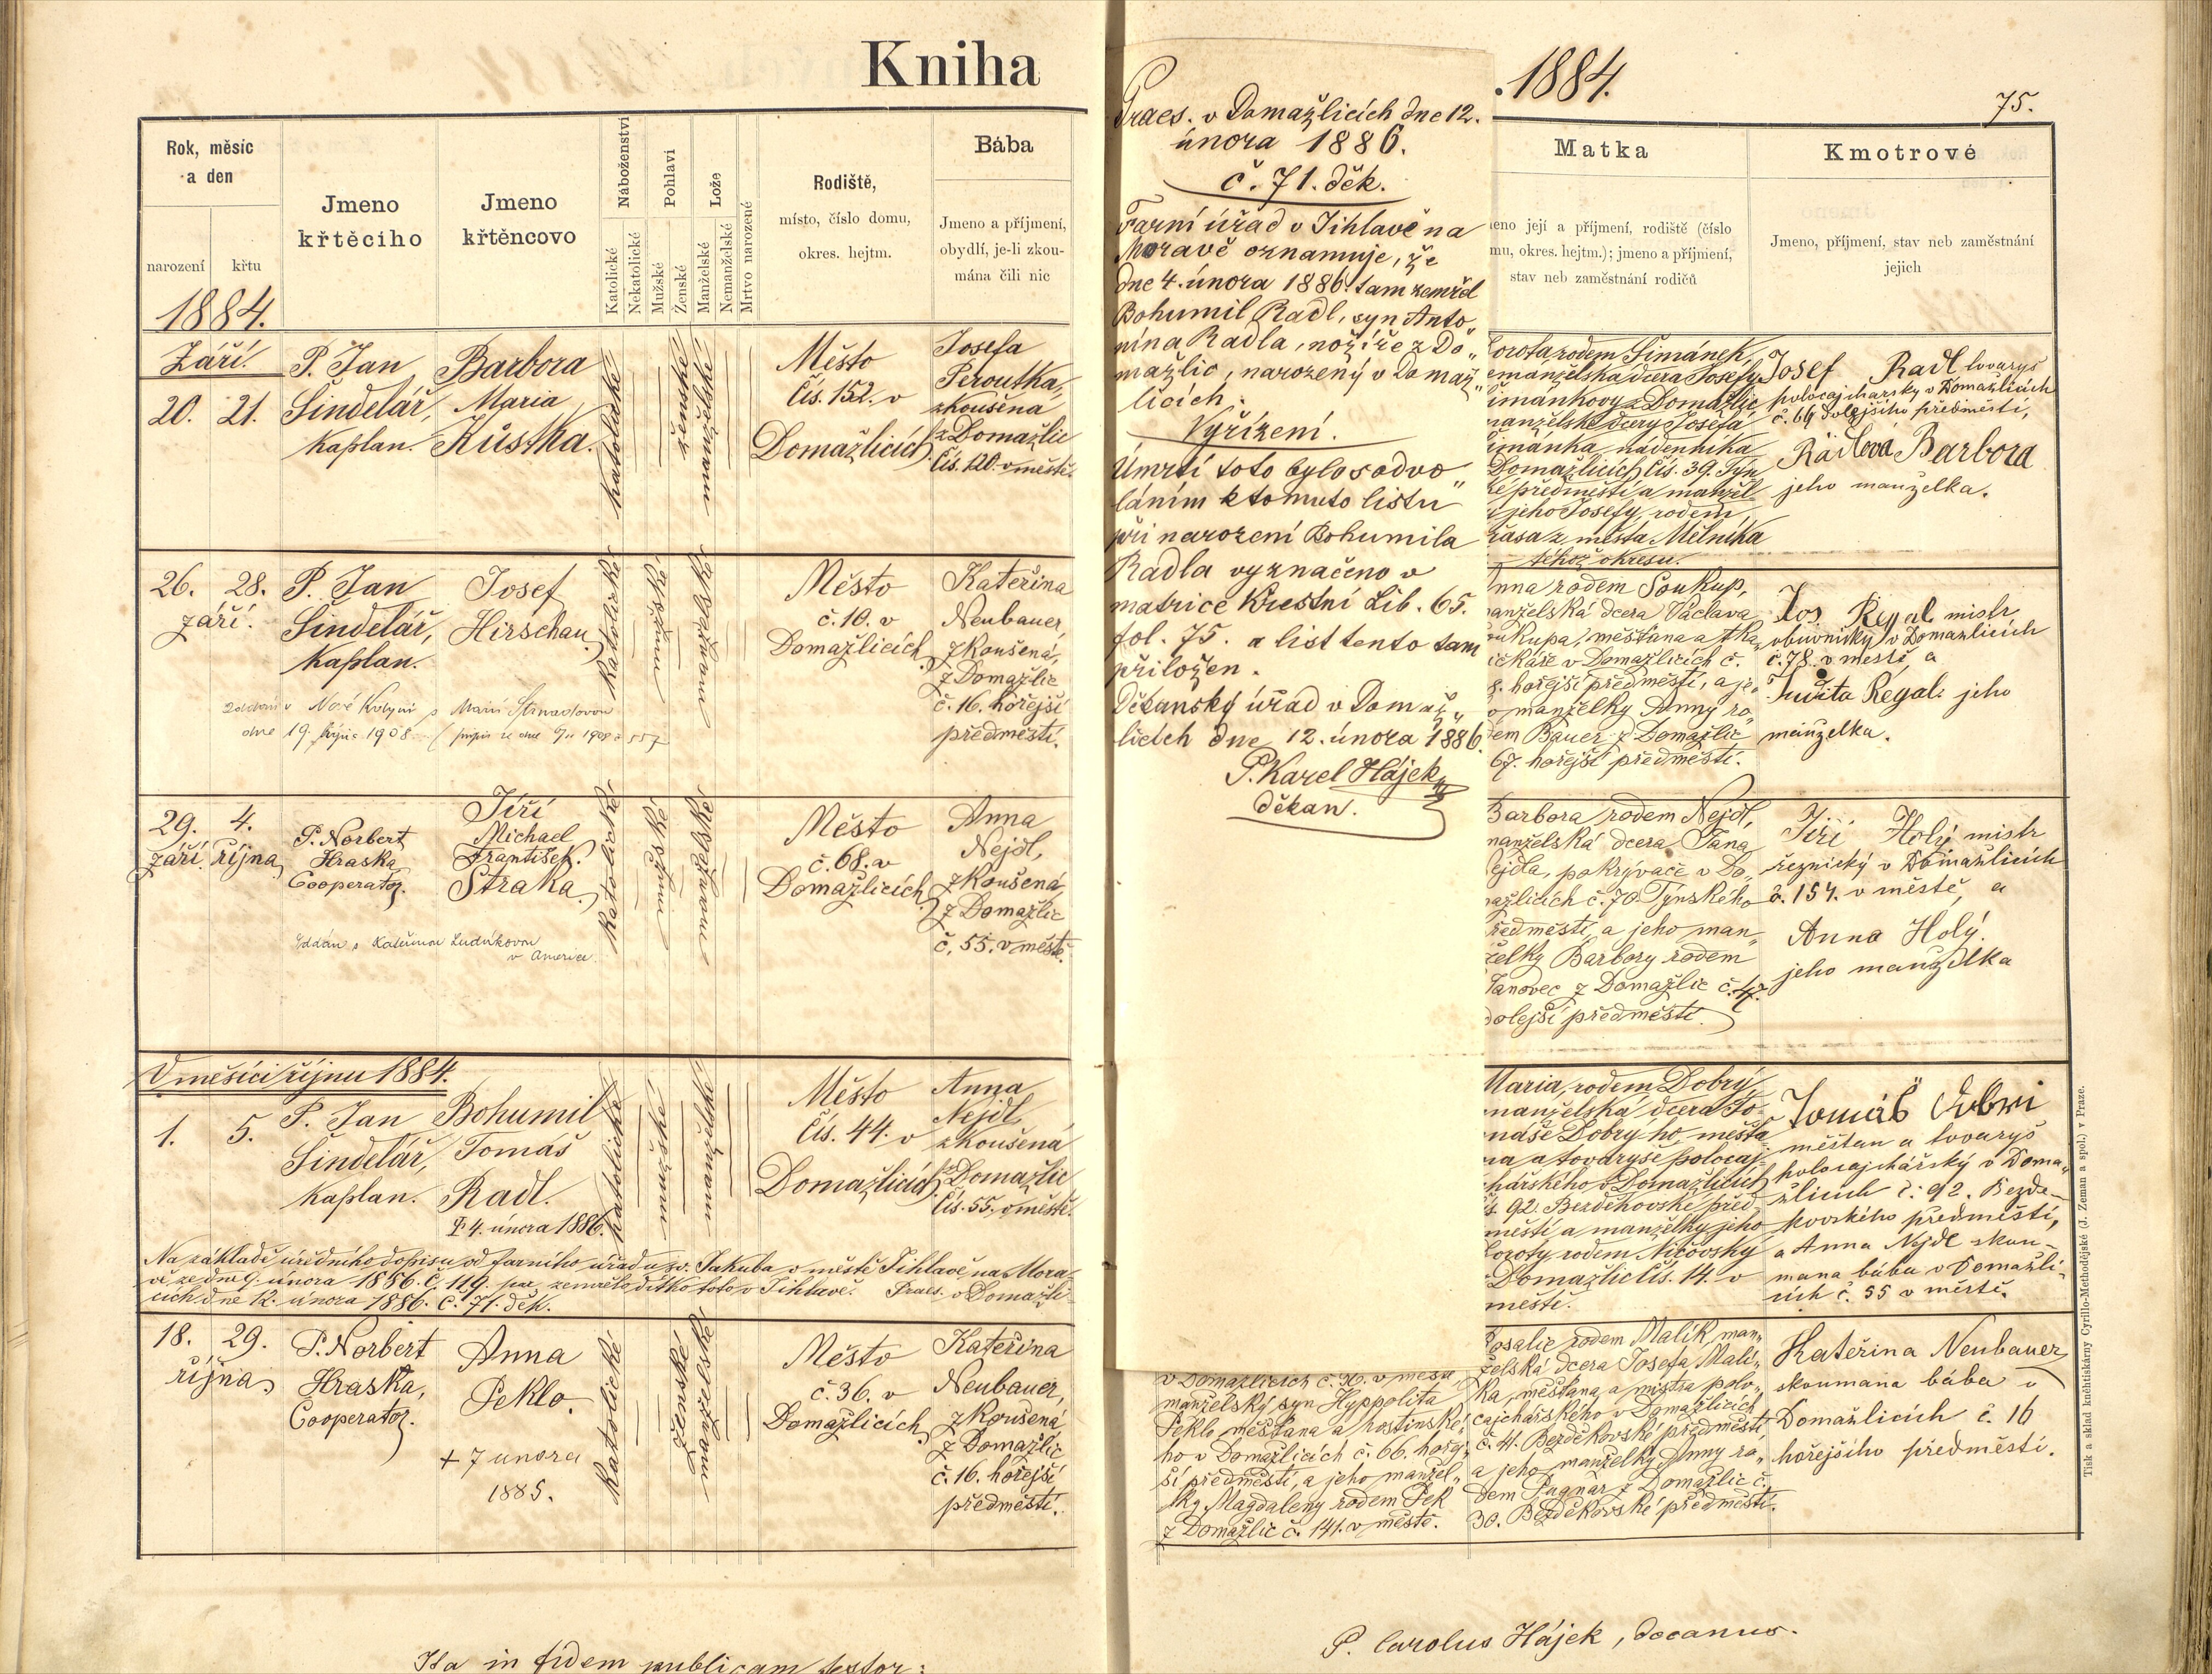 Kniha
Rok, měsíc
a den
narození
křtu
Jmeno
křtěcího
Jmeno
křtěncovo
Náboženství
Katolické
Nekatolické
Pohlaví
Mužské
Ženské
Lože
Manželské
Nemanželské
Mrtvo narozené
Rodiště,
místo, číslo domu,
okres. hejtm.
Bába
Jmeno a příjmení,
obydlí, je-li zkou-
mána čili nic
1884.
Září.
20. 21.
P. Jan
Šindelář,
Kaplan.
Barbora
Maria
Kůstka.
katolické
ženské
manželské
Město
Čís. 152. v
Domažlicích
Josefa
Peroutka,
zkoušená
z Domažlic
Čís. 120. v městě.
26. 28.
září.
P. Jan
Šindelář,
Kaplan.
Josef
Hirschau.
Katolické
Město
č. 10. v
Domažlicích
Kateřina
Neubauer,
zkoušená,
z Domažlic
č. 16. hořejší
předměstí.
dne 19. října 1908
29. 4.
září. října
P. Norbert
Hraska
Cooperator.
Jiří
Michael
František.
Straka.
Katolické
Město
č. 68. v
Domažlicích
Anna
Nejdl,
zkoušená
z Domažlic
č. 55. v městě.
v Americe.
V měsíci říjnu 1884.
1. 5.
P. Jan
Šindelář,
Kaplan.
Bohumil
Tomáš
Radl.
† 4. února 1886.
katolické
mužské
manželské
Město
Čís. 44. v
Domažlicích
Anna
Nejdl,
zkoušená
z Domažlic
Čís. 55. v městě.
Na základě úředního dopisu od farního úřadu sv. Jakuba v městě Jihlavě na Mora-
vě ze dne 9. února 1886. č. 119. zemřelo dítko toto v Jihlavě. Praes. v Domažli-
cích dne 12. února 1886. č. 71. děk.
18. 29.
října
P. Norbert
Hraska,
Cooperator.
Anna
Peklo.
+ 7 unora
1885.
Katolické
ženské
manželské
Město
č. 36. v
Domažlicích
Kateřina
Neubauer,
zkoušená
z Domažlic
č. 16. hořejší
předměstí.
Ita in fidem publicam testor:
Praes. v Domažlicích dne 12.
února 1886.
č. 71. děk.
Farní úřad v Jihlavě na
Moravě oznamuje, že
dne 4. února 1886. tam zemřel
Bohumil Radl, syn Anto„
nína Radla, nožíře z Do„
mažlic, narozený v Domaž„
licích.
Vyřízení.
Úmrtí toto bylo s odvo„
láním k tomuto listu
při narození Bohumila
Radla vyznačeno v
matrice Křestní Lib. 65.
fol. 75. a list tento tam
přiložen.
Děkanský úřad v Domaž„
licích dne 12. února 1886.
P. Karel Hájek
děkan.
v Domažlicích č. 36. v měst
manželský syn Hyppolita
Peklo měšťana a hostinské„
ho v Domažlicích č. 66. hořej„
ší předměstí, a jeho manžel„
ky Magdaleny rodem Pek
z Domažlic č. 141. v městě.
. 1884.
75.
Matka
eno její a příjmení, rodiště (číslo
mu, okres. hejtm.); jmeno a příjmení,
stav neb zaměstnání rodičů
Kmotrové
Jmeno, příjmení, stav neb zaměstnání
jejich
orota rodem Šimánek,
emanželská dcera Josefy
imánkovy z Domažlic
manželské dcery Josefa
imánka, nádenníka
Domažlicích čís. 39. Týn
ké předměstí a manžel
jeho Josefy, rodem
z města Mělníka
téhož okresu.
Josef Radl tovaryš
polocajchařský v Domažlicích
č. 69 dolejšího předměstí,
Rádlová Barbora
jeho manželka.
nna rodem Soukup,
anželská dcera Václava
oukupa, měšťana a tka„
v Domažlicích č.
8. hořejší předměstí, a je„
o manželky Anny ro„
dem Bauer z Domažlic
67. hořejší předměstí.
Jos. Regal mistr
obuvnický v Domažlicích
č. 78. v městě, a
Judita Regal jeho
manželka.
Barbora rodem Nejdl,
manželská dcera Jana
ejdla, pokrývače v Do„
mažlicích č. 70 Týnského
ředměstí, a jeho man„
želky Barbory rodem
Janovec z Domažlic č. 47.
dolejší předměstí.
Jiří Holý mistr
řeznický v Domažlicích
č. 154. v městě, a
Anna Holý.
jeho manželka
Maria, rodem Dobrý
manželská dcera To-
máše Dobrý-ho, měšťa
na a tovaryše polocaj-
chařského v Domažlicích
s. 92. Bezděkovské před
městí a manželky jeho
Doroty, rodem Ničovský
Domažlic čís. 14. v
městě.
Tomáš Dobri
měštan a tovaryš
polocajchářský v Doma„
žlicích č: 92. Bezdě-
kovského předměstí,
a Anna Nejdl skou-
maná bába v Domažli-
cích č. 55 v městě.
Rosalie rodem Malík, man„
želská dcera Josefa Malí„
ka, měšťana a mistra polo„
cajchářského v Domažlicích
č. 41. Bezděkovské předměstí,
a jeho manželky Anny ro„
dem Pagnar z Domažlic č.
30. Bezděkovské předměstí.
Kateřina Neubauer
skoumaná bába v
Domažlicích č. 16
hořejšího předměstí.
Tisk a sklad kněhtiskárny Cyrillo-Methodějské (J. Zeman a spol.) v Praze.
P. Carolus Hájek, decanus.